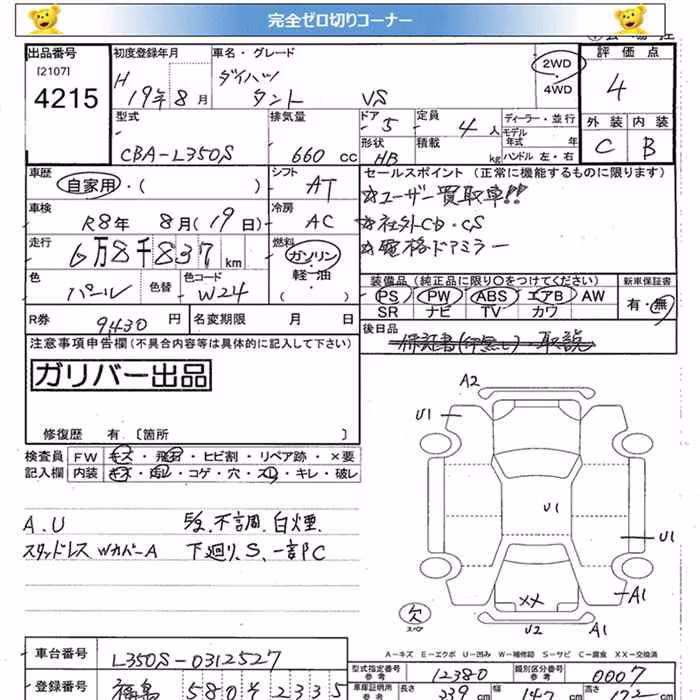 完全ゼロ切りコーナー
出品番号
[2107]
4215
初度登録年月
H 19年 8月
車名・グレード
ダイハツ
タント VS
2WD
・
4WD
評価点
4
外装 内装
C B
型式
CBA-L350S
排気量
660 cc
ドア 5
形状 HB
定員 4 人
積載 kg
ディーラー・並行
モデル
年式 年
ハンドル 左・右
車歴
自家用・( )
シフト
AT
車検
R8年 8月(19日)
冷房
AC
走行
6万8千837 km
燃料
ガソリン
・
軽・油
( )
色
パール
色替
色コード
W24
R券
9430 円
名変期限 月 日
セールスポイント (正常に機能するものに限ります)
☆ユーザー買取車!!
☆社外CD・CS
☆電格ドアミラー
装備品 (純正品に限り○をつけてください)
PS PW ABS エアB AW
SR ナビ TV カワ
新車保証書
有・無
後日品
保証書(行無し)・取説
注意事項申告欄(不具合内容等は具体的に記入して下さい)
ガリバー出品
修復歴 有 〔箇所 〕
検査員
記入欄
FW キズ・飛石・ヒビ割・リペア跡・×要
内装 キズ・汚レ・コゲ・穴・スレ・キレ・破レ
A.U 不調.白煙.
スタッドレス WカバーA 下廻り.S.一部PC
A2
U1
U1
U1
A1
XX
欠
スペア
U2 A1
A－キズ E－エクボ U－凹み W－補修跡 S－サビ C－腐食 XX－交換済
車台番号
L350S-0312527
登録番号
福島 580 そ 2335
型式指定番号
参考
12380
類別区分番号
参考
0007
車庫証明用
参考
長さ 339 cm 幅 147 cm 高さ 172 cm